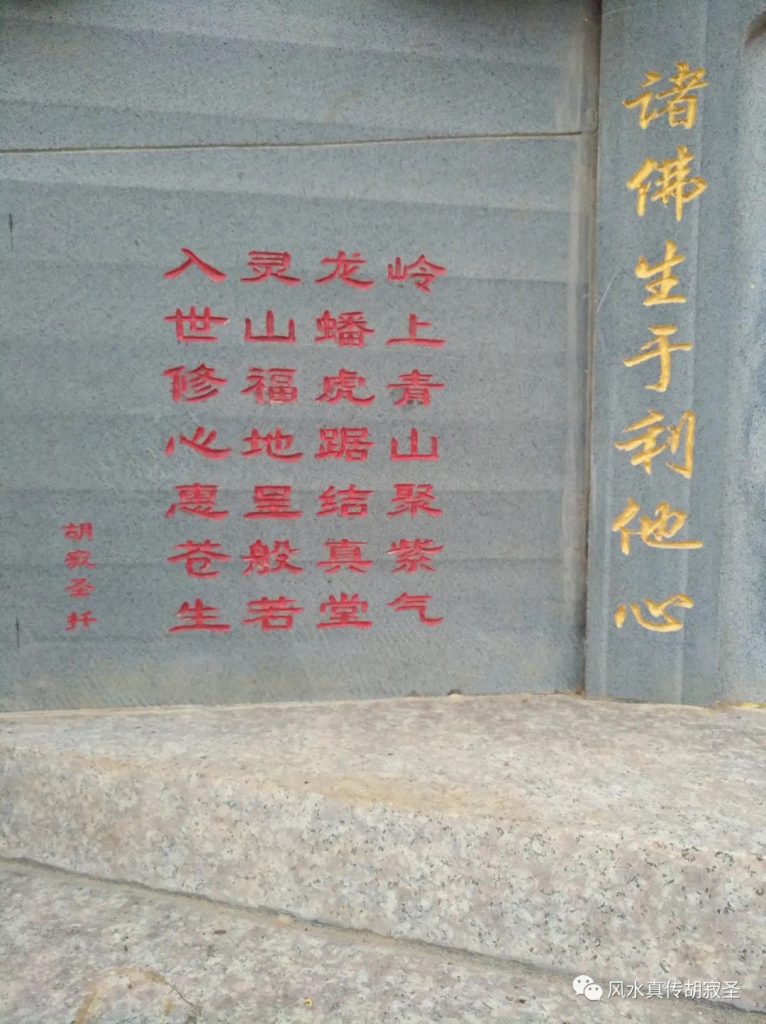 诸佛生于利他心
岭上青山聚紫气
龙蟠虎踞结真堂
灵山福地呈般若
入世修心惠苍生
胡寂圣扦
风水真传胡寂圣